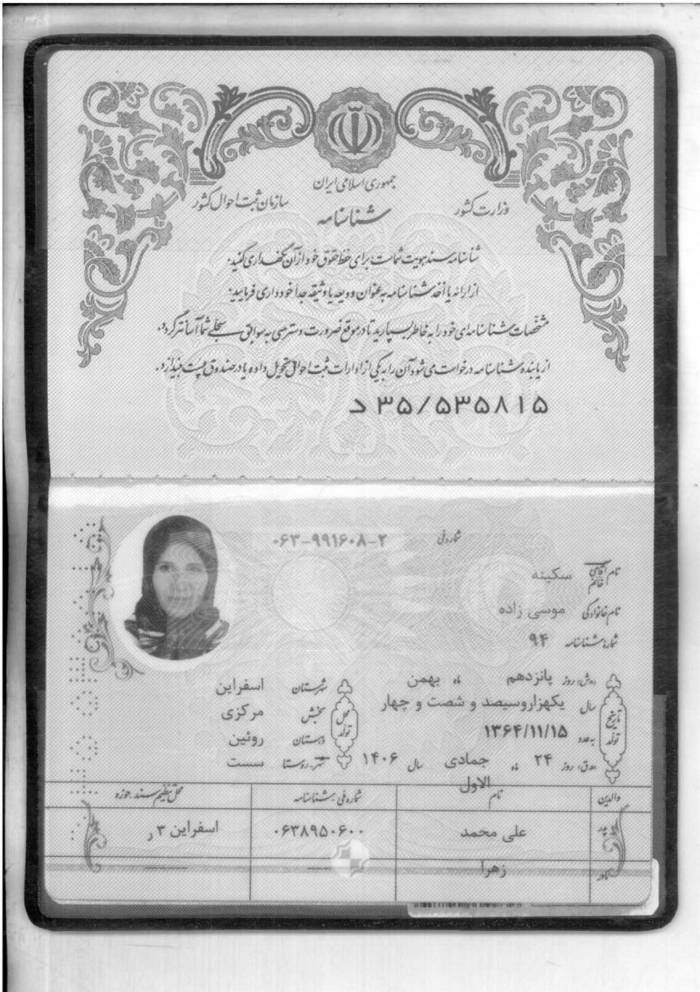 جمهوری اسلامی ایران
وزارت کشور
سازمان ثبت احوال کشور
شناسنامه
شناسنامه سند هویت شماست برای حفظ حقوق خود از آن نگهداری کنید.
از ارائه یا اخذ شناسنامه به عنوان ودیعه یا وثیقه جدا خودداری فرمایید.
مشخصات شناسنامه‌ای خود را به خاطر بسپارید تا در موقع ضرورت دسترسی به سوابق سجلی شما آسانتر گردد.
از یابنده شناسنامه درخواست می شود آن را به یکی از ادارات ثبت احوال تحویل داده یا در صندوق پست بیندازد.
۳۵/۵۳۵۸۱۵ د
شماره ملی ۰۶۳-۹۹۱۶۰۸-۲
نام آقای خانم سکینه
نام خانوادگی موسی زاده
شماره شناسنامه ۹۴
تاریخ تولد
روز پانزدهم ماه بهمن
سال یکهزاروسیصد و شصت و چهار
به عدد ۱۳۶۴/۱۱/۱۵
روز ۲۴ ماه جمادی الاول سال ۱۴۰۶
محل تولد
شهرستان اسفراین
بخش مرکزی
دهستان روئین
شهر، روستا سست
والدین نام شماره ملی / شناسنامه محل تنظیم سند / حوزه
پدر علی محمد ۰۶۳۸۹۵۰۶۰۰ اسفراین ۳ر
مادر زهرا